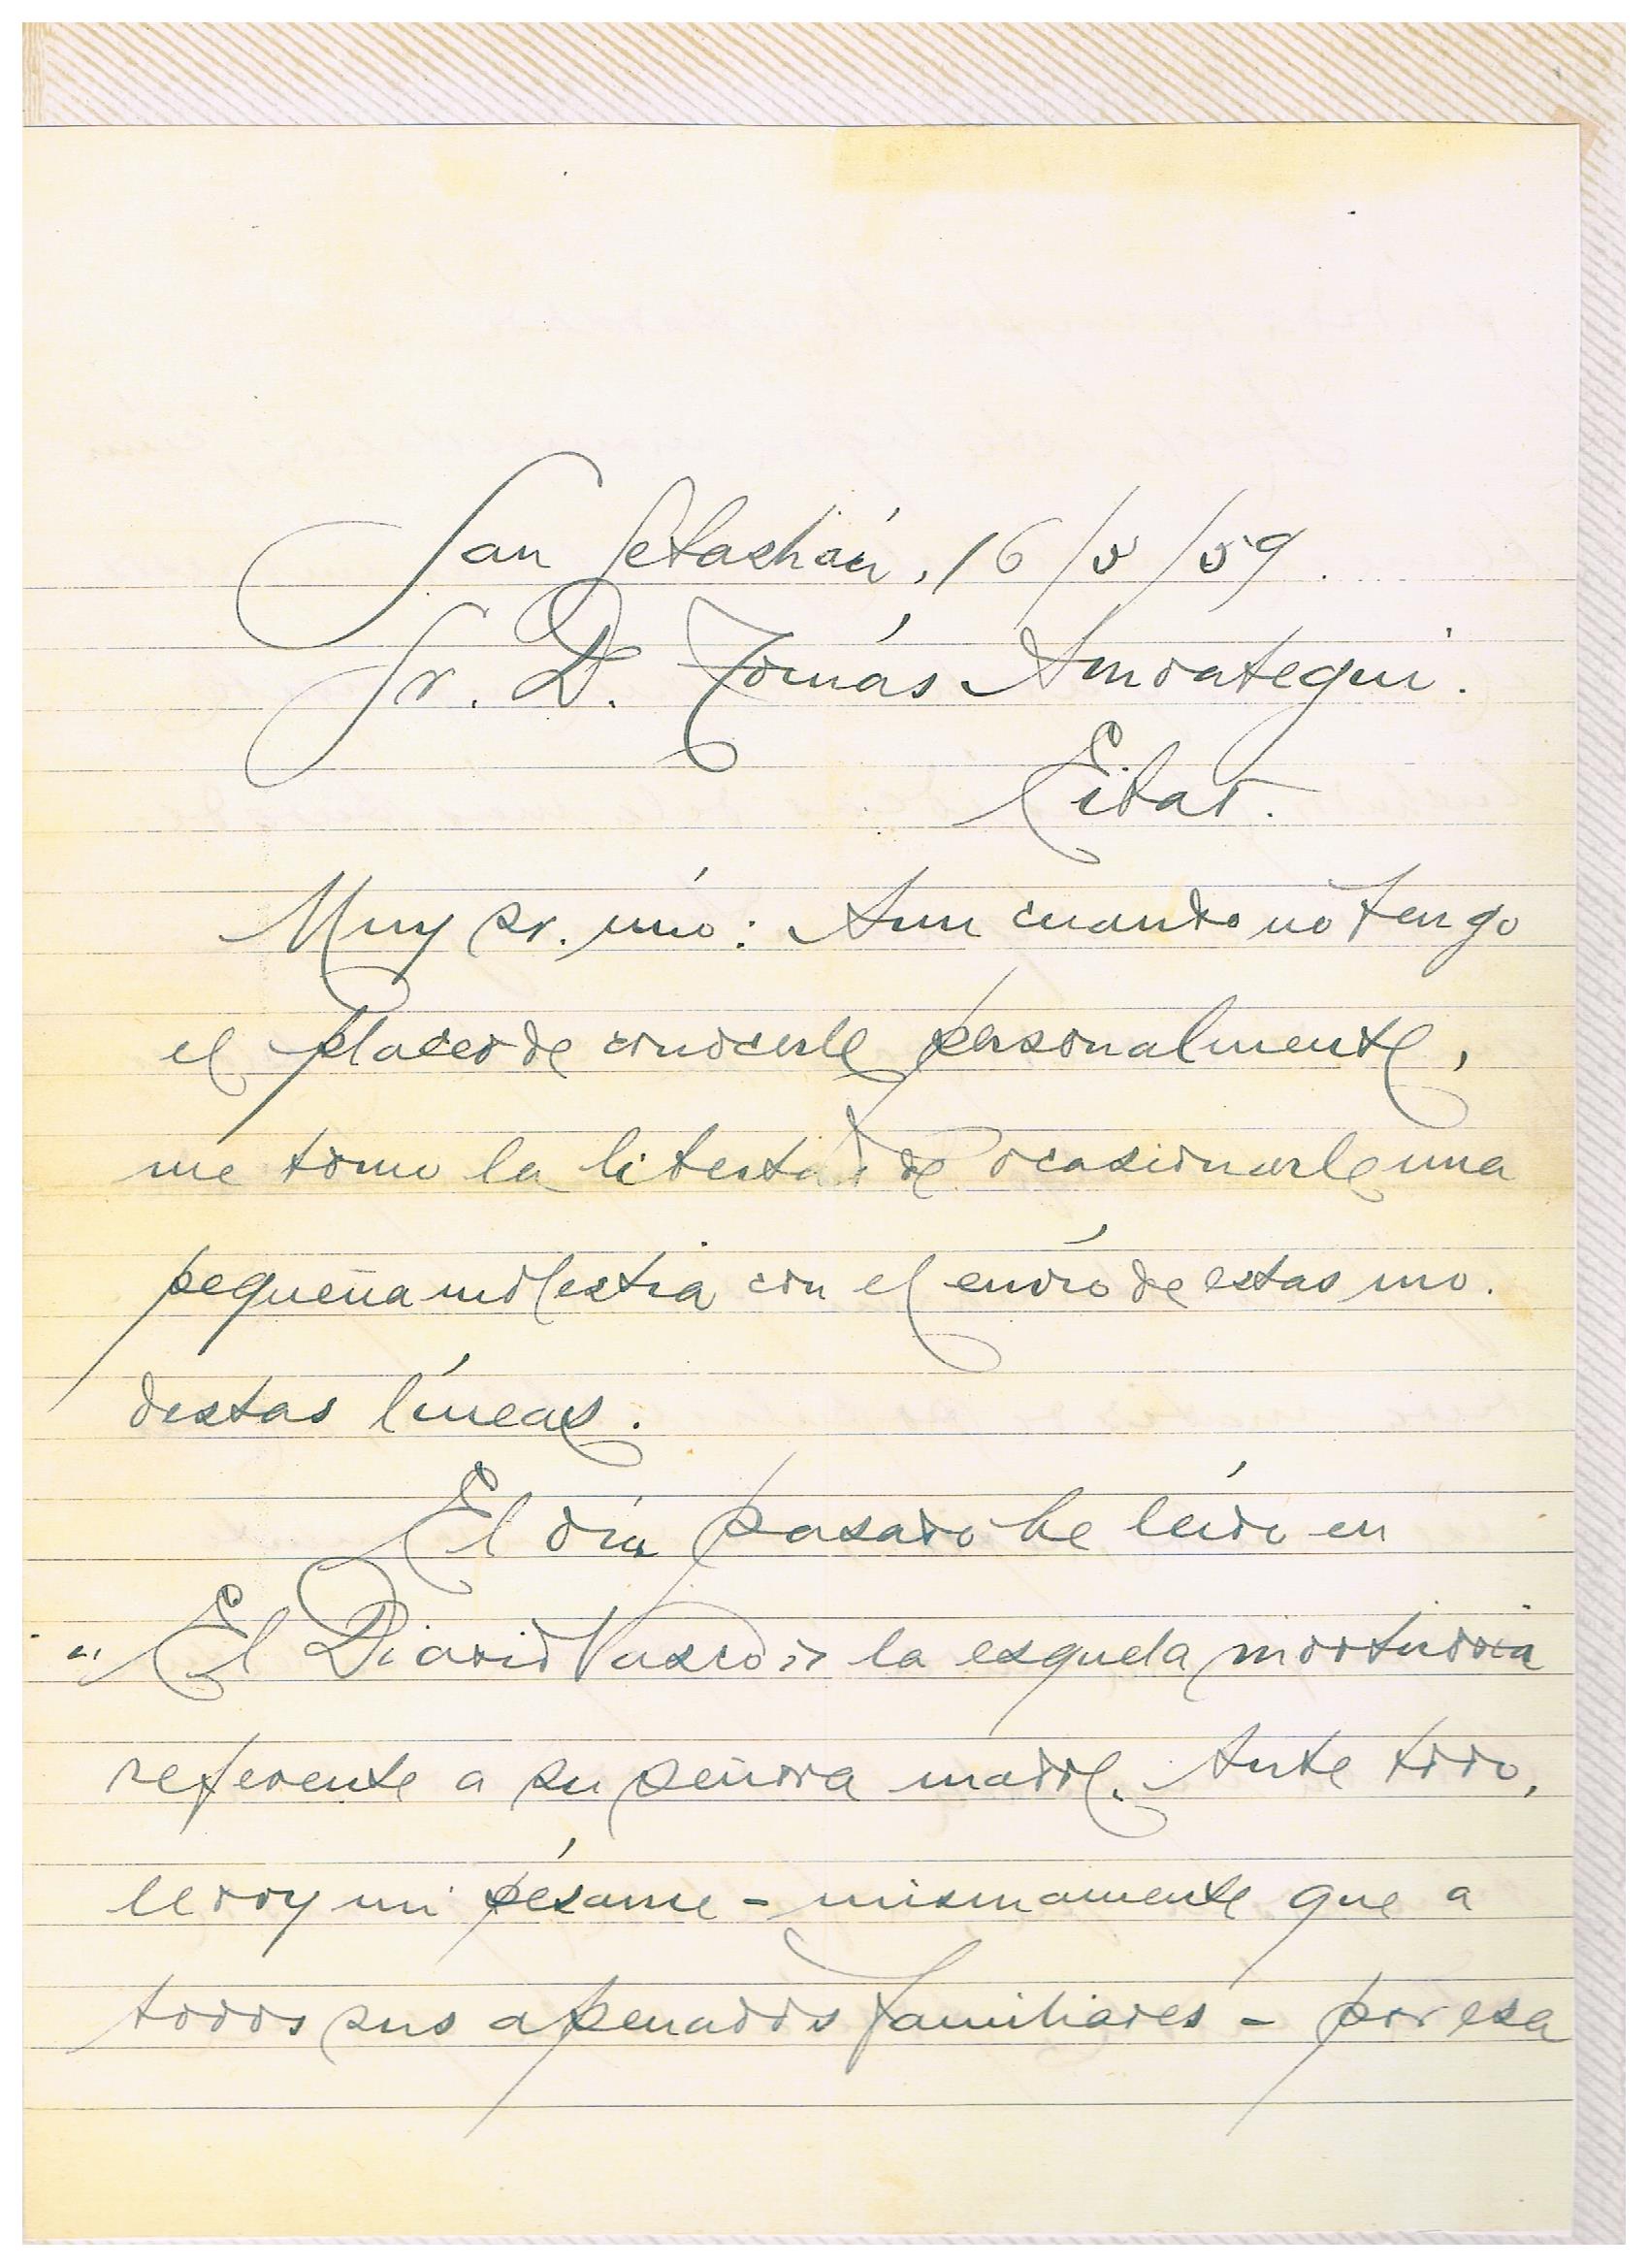 San Sebastián, 16/5/59.
Sr. D. Tomás Amoategui.
Eibar.
Muy sr. mío: Aun cuando no tengo
el placer de conocerle personalmente,
me tomo la libertad de ocasionarle una
pequeña molestia con el envío de estas mo-
destas líneas.
El día pasado he leído en
"El Diario Vasco" la esquela mortuoria
referente a su señora madre. Ante todo,
le doy mi pésame - mismamente que a
todos sus apenados familiares - por esa